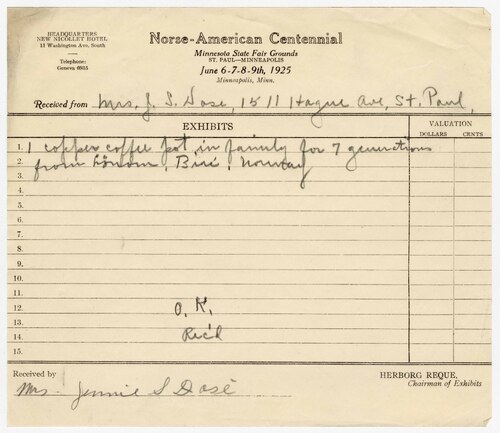 HEADQUARTERS
NEW NICOLLET HOTEL
11 Washington Ave. South
Telephone:
Geneva 6915
Norse-American Centennial
Minnesota State Fair Grounds
ST. PAUL—MINNEAPOLIS
June 6-7-8-9th, 1925
Minneapolis, Minn.
Received from Mrs. J. S. Dose, 1511 Hague Ave, St. Paul,
EXHIBITS
VALUATION
DOLLARS CENTS
1. 1 copper coffee pot in family for 7 generations
2. from Biri, Norway
3.
4.
5.
6.
7.
8.
9.
10.
11.
12. O.K.
13.
14. Rec'd
15.
Received by
Mrs. Jennie S Dosé
HERBORG REQUE,
Chairman of Exhibits